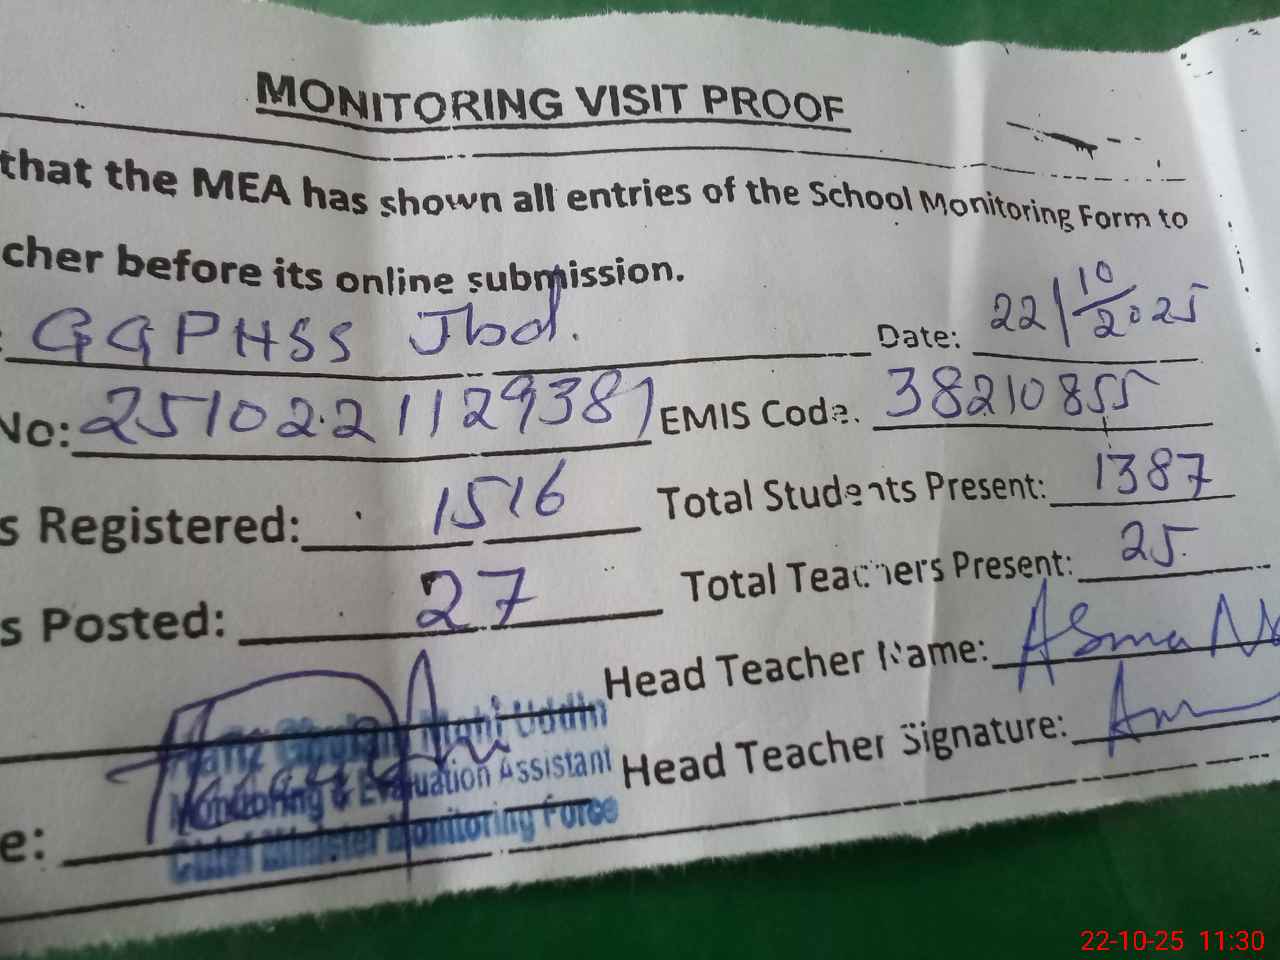 MONITORING VISIT PROOF
that the MEA has shown all entries of the School Monitoring Form to
cher before its online submission.
: GGPHSS Jbd. Date: 22/10/2025
No: 2510221129381 EMIS Code. 38210855
s Registered: 1516 Total Students Present: 1387
s Posted: 27 Total Teachers Present: 25
Head Teacher Name: Asma
Uddin
Monitoring & Evaluation Assistant Head Teacher Signature:
Chief Minister Monitoring Force
e:
22-10-25 11:30